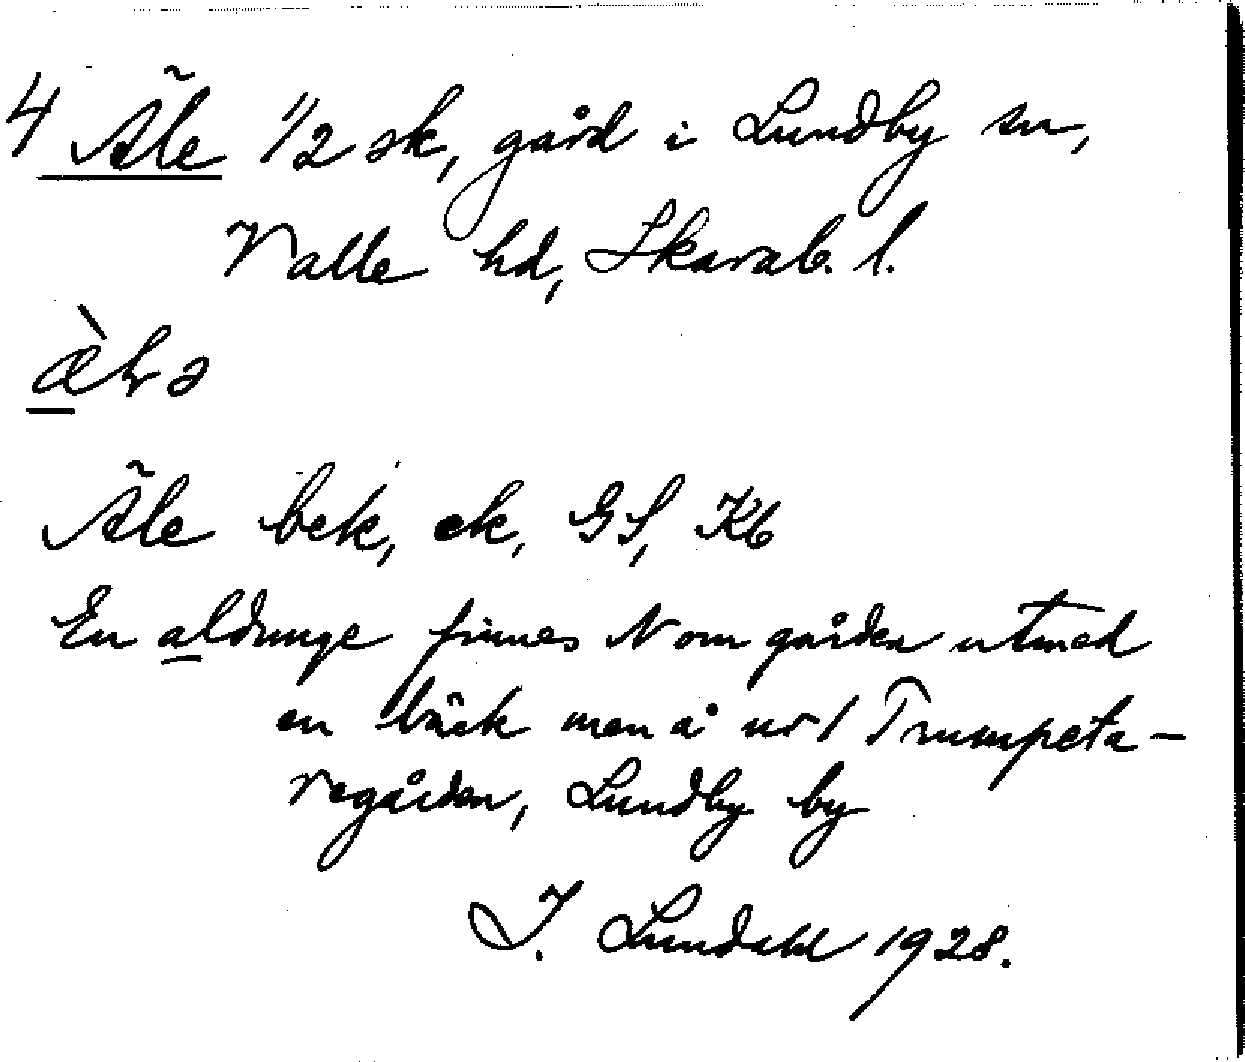 4 Äle 1/2 sk, gård i Lundby sn,
Valle hd, Skarab. l.
Äle bek, ek, GS, Kb
En aldunge finnes N om gården utmed
en bäck men å ur / Trumpeta-
regården, Lundby by
I. Lundahl 1928.